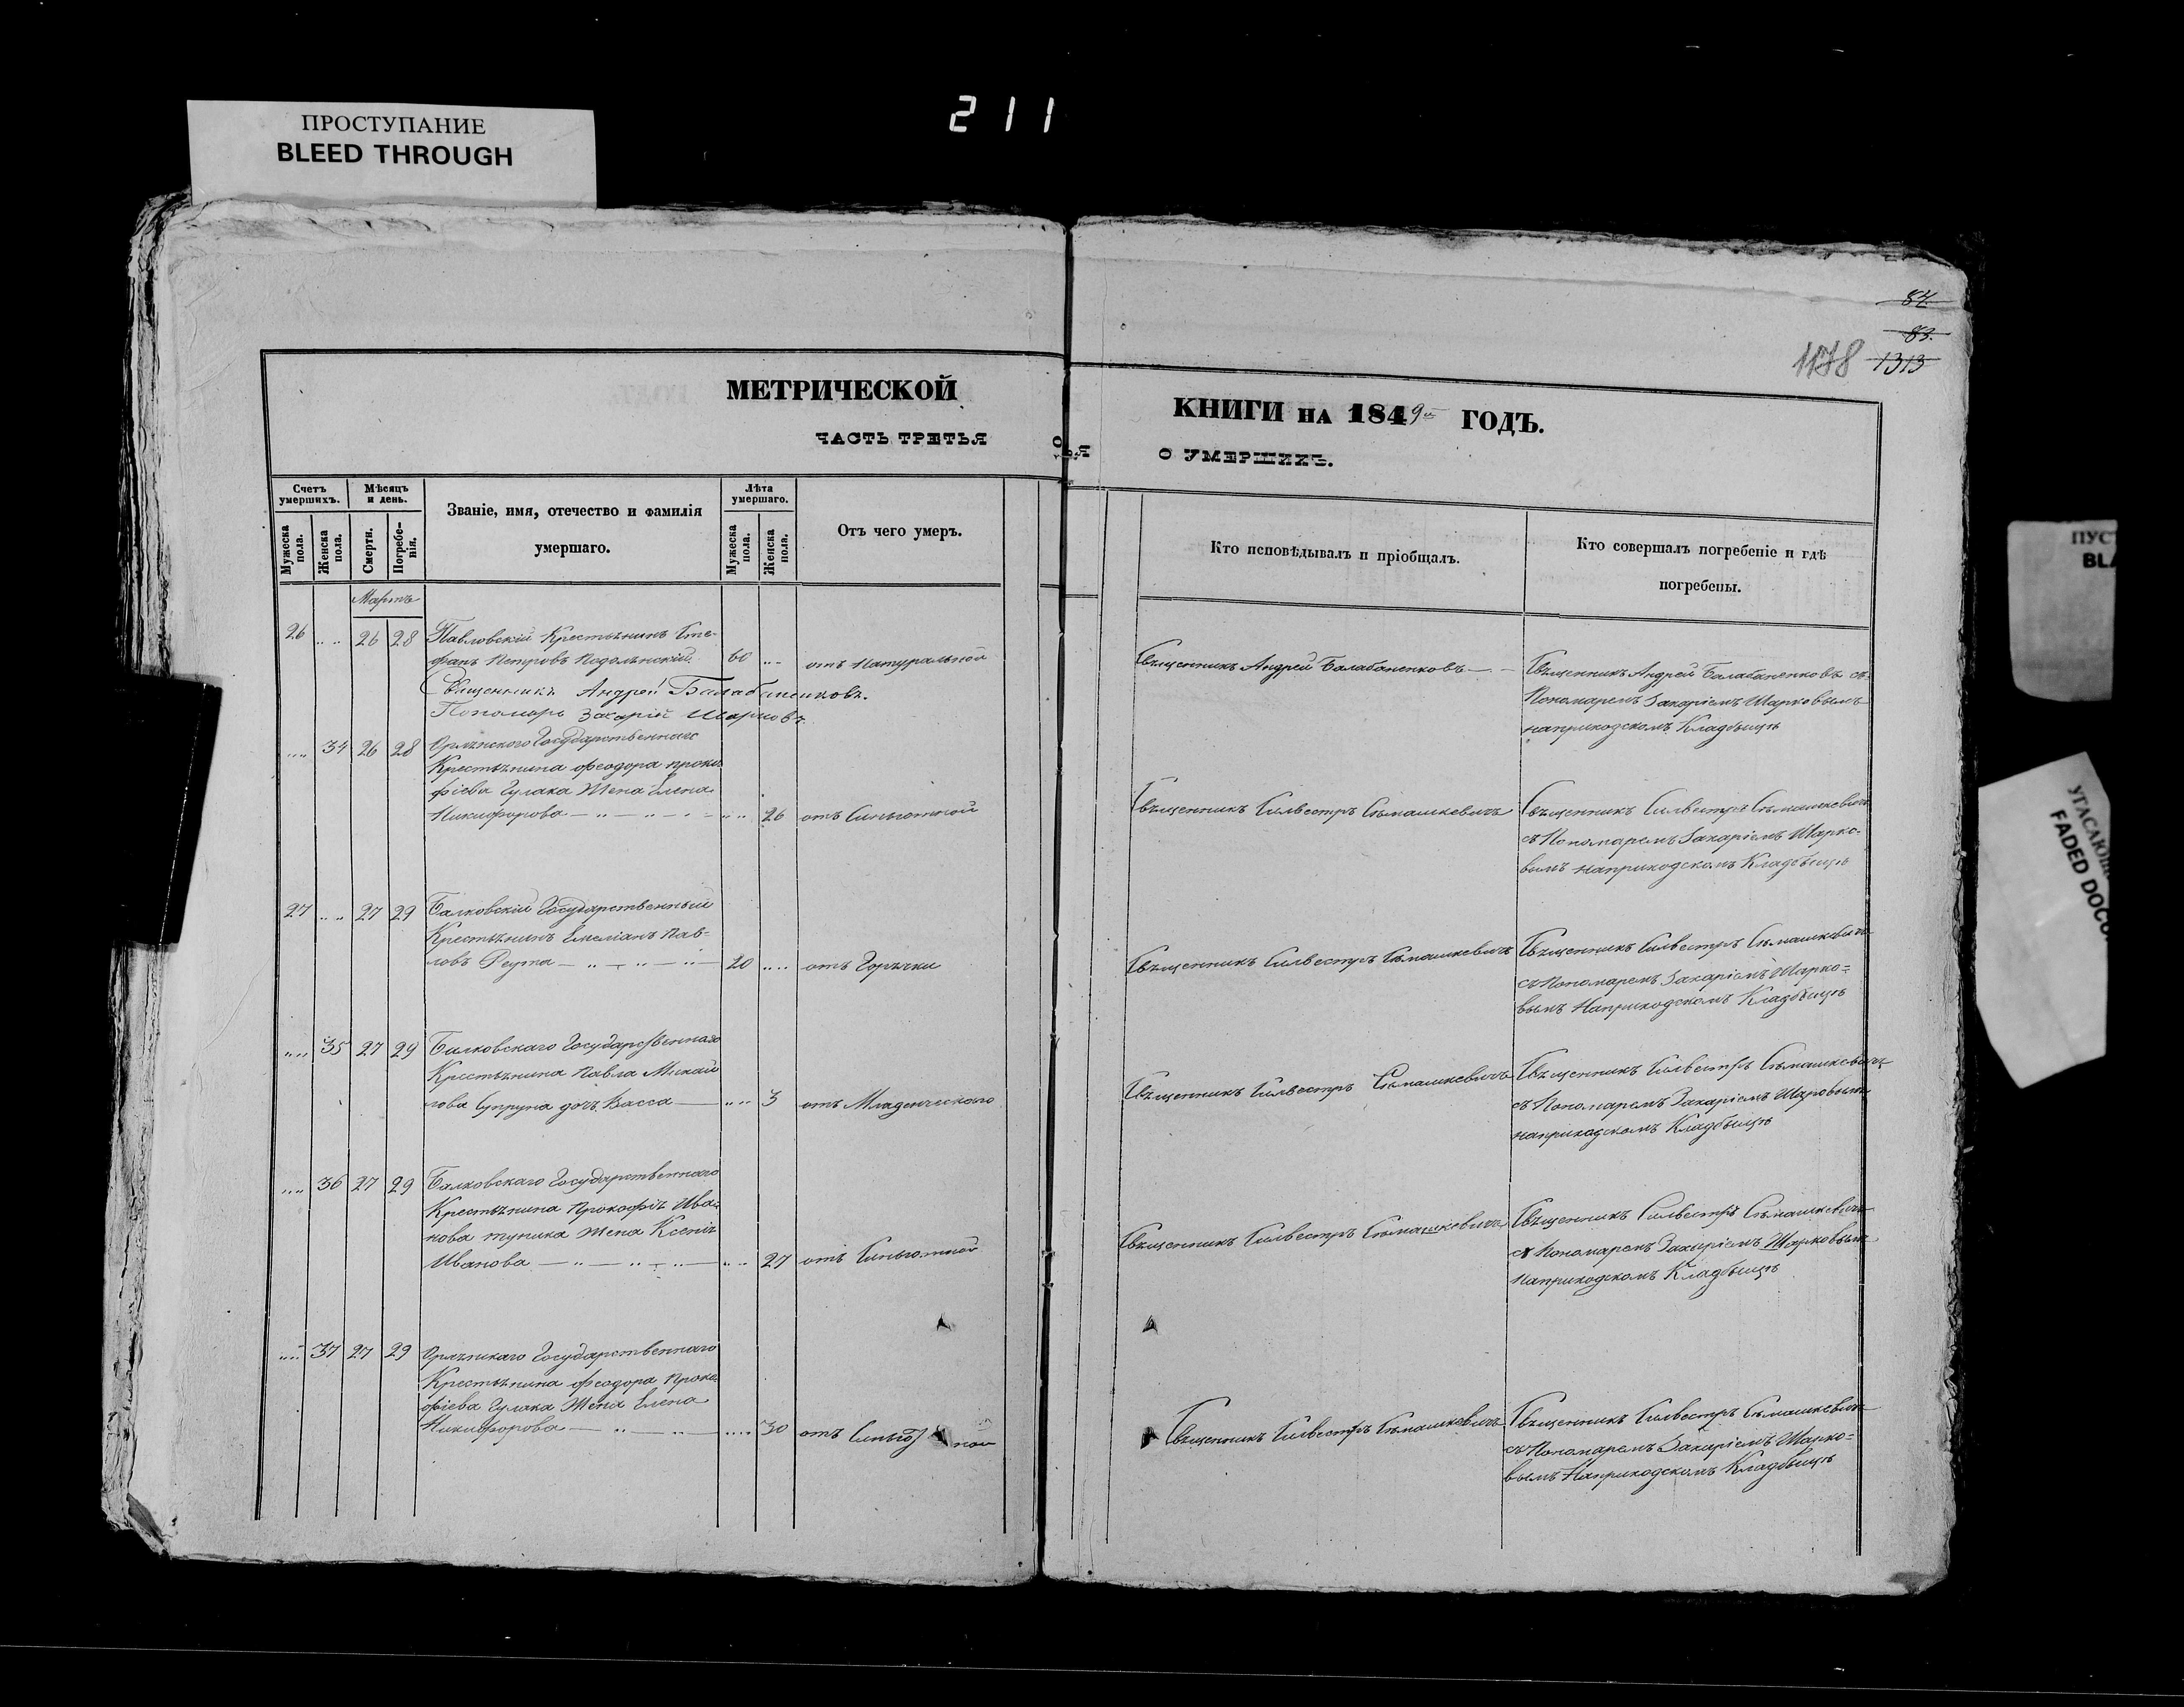 211
ПРОСТУПАНИЕ
BLEED THROUGH
84.
83.
1178 1313
МЕТРИЧЕСКОЙ
ЧАСТЬ ТРЕТЬЯ
КНИГИ НА 1849 ГОДЪ.
О УМЕРШИХЪ.
Счетъ умершихъ.
Мужеска пола.
Женска пола.
Мѣсяцъ и день.
Смерти.
Погребе-
нія.
Званіе, имя, отечество и фамилія
умершаго.
Лѣта умершаго.
Мужеска пола.
Женска пола.
Отъ чего умеръ.
Кто исповѣдывалъ и пріобщалъ.
Кто совершалъ погребеніе и гдѣ
погребены.
Мартъ
26 26 28 Павловскій Крестьянинъ Сте-
фанъ Петровъ Подолянскій 60 отъ Натуральной
Священникъ Андрей Балабаненковъ
Священникъ Андрей Балабаненковъ съ
Пономаремъ Захаріемъ Шарковымъ
Кладбищѣ
Священникъ Андрей Балабаненковъ.
Пономарь Захарій Шарковъ
34 26 28 Государственнаго
Крестьянина Феодора Проко
фіева Гулака Жена Елена
Никифорова 26 отъ
Священникъ Сильвестръ Сѣмашкевичъ
Священникъ Сильвестръ Сѣмашкевичъ
съ Пономаремъ Захаріемъ Шарко-
вымъ наприходскомъ Кладбищѣ
27 27 29 Балковскій Государственный
Крестьянинъ Емеліанъ Пав-
ловъ Реута 20 отъ Горячки
Священникъ Сильвестръ Сѣмашкевичъ
Священникъ Сильвестръ Сѣмашкевичъ
съ Пономаремъ Захаріемъ Шарко=
вымъ Наприходскомъ Кладбищѣ
35 27 29 Балковскаго Государственнаго
Крестьянина Павла Михай
лова Супруна дочъ Васса 3 отъ Младенческаго
Священникъ Сильвестръ Сѣмашкевичъ
Священникъ Сильвестръ Сѣмашкевичъ
съ Пономаремъ Захаріемъ
наприходскомъ Кладбищѣ
36 27 29 Балковскаго Государственнаго
Крестьянина Прокофія Ива-
нова Жена Ксенія
Иванова 27 отъ
Священникъ Сильвестръ Сѣмашкевичъ
Священникъ Сильвестръ Сѣмашкевичъ
съ Пономаремъ Захаріемъ Шарковымъ
Наприходскомъ Кладбищѣ
37 27 29 Государственнаго
Крестьянина Феодора Проко
фіева Гулака Жена Елена
Никифорова 30 отъ
Священникъ Сильвестръ Сѣмашкевичъ
Священникъ Сильвестръ Сѣмашкевичъ
съ Пономаремъ Захаріемъ Шарко=
вымъ Наприходскомъ Кладбищѣ
ПУСТ
BLA
УГАСАЮЩ
FADED DOCU